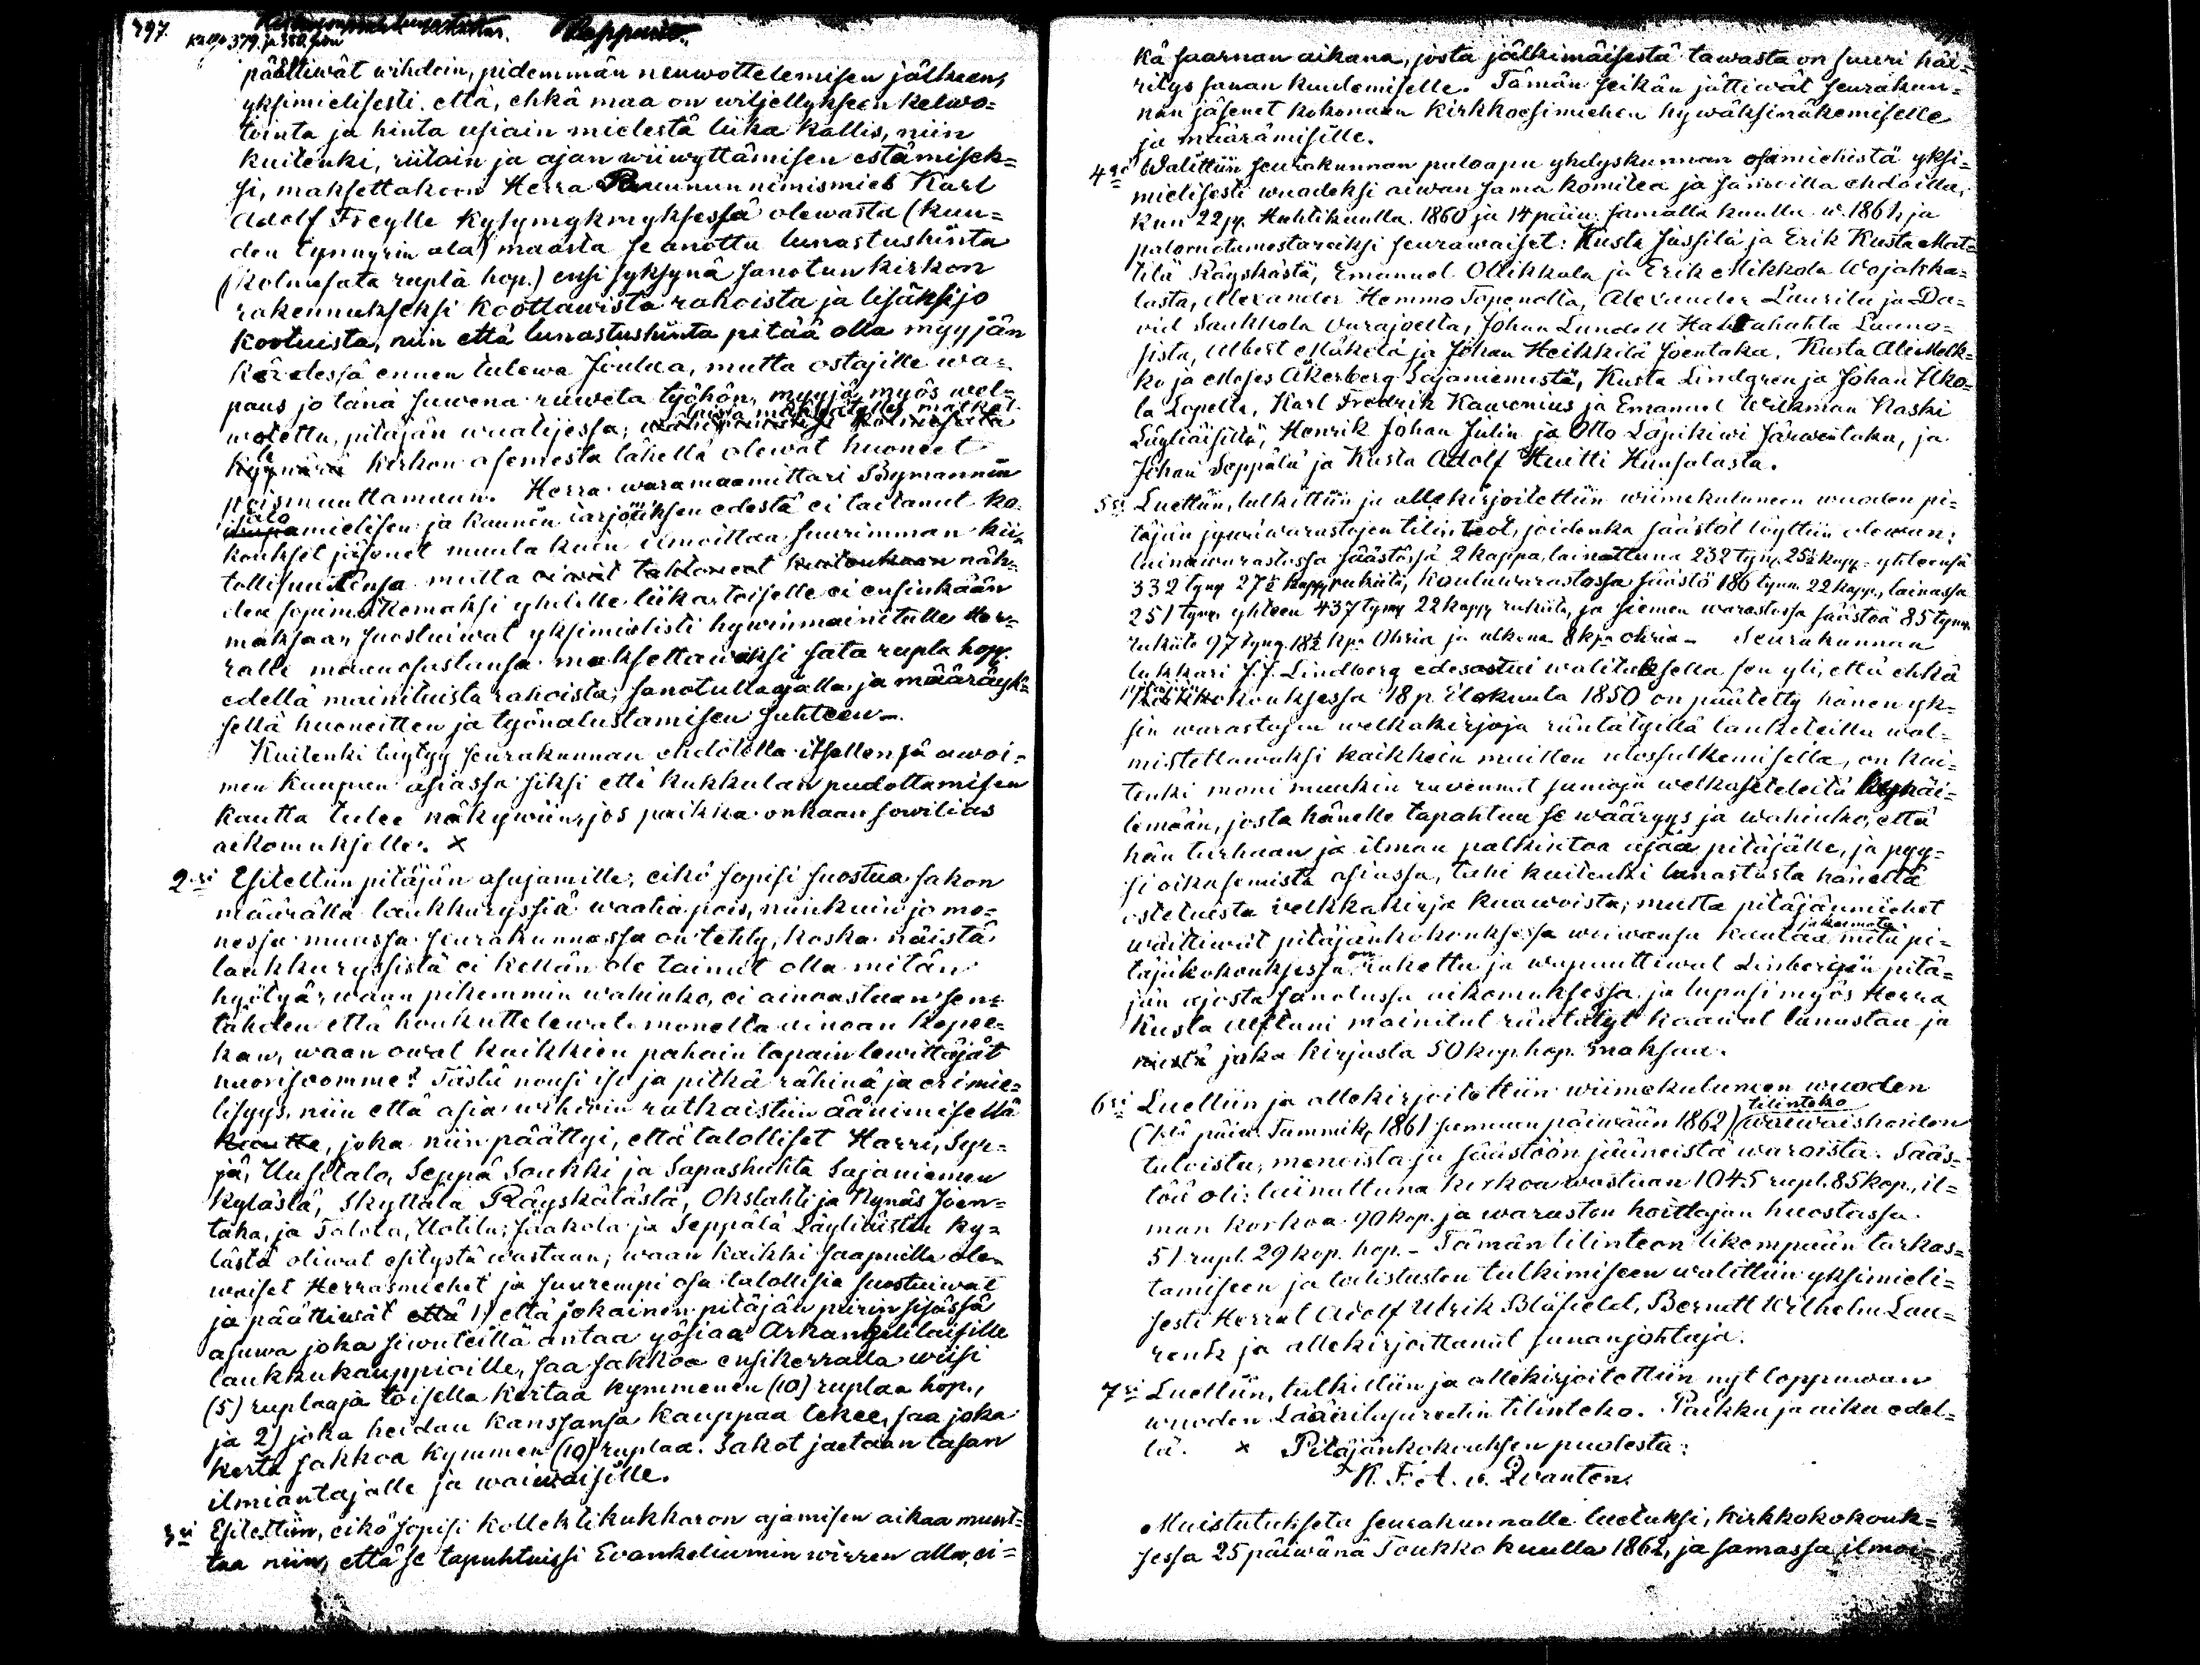 397.
Katso 379. ja 380. siwu
päättiwät wihdoin, pidemmän neuwottelemisen jälkeen,
yksimielisesti, että, ehkä maa on wiljellykseen kelwo-
tointa ja hinta usiain mielestä liika kallis, niin
kuitenki, riitain ja ajan wiiwyttämisen estämisek-
si, maksettakoon Herra Ruununnimismies Karl
Adolf Freylle kysymykmyksessä olewasta (kuu-
den tynnyrin ala) maasta se anottu lunastushinta
(kolmesata ruplä hop.) ensi syksynä sanotun kirkon
rakennukseksi koottawista rahoista ja lisäksi jo
kootuista, niin että lunastushinta pitää olla myyjän
kädessä ennen tulewa Joulua, mutta ostajille wa-
paus jo tänä suwena ruweta työhön, myyjä myös wel-
woitettu, pitäjän waatiessa,
kirkon asemesta lähellä olewat huoneet
poismuuttamaan. Herra waramaamittari Sýmannin
jalo
mielisen ja kauniin tarjouksen edestä ei taitanut ko-
kouksel jäsenet muuta kuin ilmoittaa suurimman kii-
tollisuutensa mutta eiwät tahtoneet kuitenkaan näh-
den sopimattomaksi yhdelle liika, toiselle ei ensinkään
maksaa, suostuiwat yksimielisti hywinmainitulle Her-
ralle maanosastansa maksettawaksi sata rupla hop.
edellä mainituista rahoista, sanotulla ajalla ja määräyk-
sellä huoneitten ja työnalustamisen suhteen.
Kuitenki tuytyy seurakunnan ehdotella itsellensä awoi-
men kaupan asiassa siksi että kukkulan pudottamisen
kautta tulee näkywiin, jos paikka onkaan sowilias
aikomukselle. x
2:si Esitettiin pitäjän asujamille, eikö sopisi suostua sakon
määrällä laukkuryssiä waatia pois, niinkuin jo mo-
nessa muussa seurakunnassa on tehty, koska näistä
laukkuryssistä ei kellän ole tainut olla mitän
hyötyä, waan pikemmin wahinko, ei ainoastaan sen-
tähden että houkuttelewat monelta ainoan kopee-
kan, waan owat kaikkien pahain tapain lewittäjät
nuorisoomme! Tästä nousi iso ja pitkä rähinä ja erimie-
lisyys, niin että asia wihdoin ratkaistiin äänimisellä
kautta, joka niin päättyi, että talolliset Harri, Syr-
jä, Uusitalo, Seppä Saukki ja Sapashuhta Sajaniemen
kylästä, Skyttälä Räyskälästä, Okslahti ja Nynäs Joen-
taka, ja Talola, Uotila, Jaakola ja Seppälä Läyliäisten ky-
lästä oliwat esitystä wastaan; waan kaikki saapuilla ole-
waiset Herrasmiehet ja suurempi osa talollisia suostuiwat
ja päättiwät että 1) että jokainen pitäjän piirin sisässä
asuwa joka siwuteillä antaa yösiaa Arkangelilaisille
laukkukauppioille, saa sakkoa ensikerralla wiisi
(5) ruplaaja toisella kertaa kymmenen (10) ruplaa hop.,
ja 2) joka heidän kanssansa kauppaa tekee, saa joka
kerta sakkoa kymmen (10) ruplaa. Sakot jaetaan tasan
ilmiantajalle ja waiwaisille.
3:si Esitettiin, eikö sopisi kollehtikukkaron ajamisen aikaa muut-
taa niin, että se tapahtuissi Evankeliumin wirren alla, ei-
kä saarnan aikana, josta jälkimäisestä tawasta on suuri häi-
ritys sanan kuulemiselle. Tämän seikan jättiwät seurakun-
nan jäsenet kokonaan kirkkoesimiehen hywäksinäkemiselle
ja määrämisille.
4:si Walittiin seurakunnan puloapu yhdyskunnan osamiehistä yksi-
mielisesti wuodeksi aiwan sama komitea ja samoilla ehdoilla,
kun 22 p. Huhtikuulla 1860 ja 14 päiw. samalla kuulla w. 1861, ja
palomotumestareiksi seurawaiset: Kusta Jussila ja Erik Kusta Mat-
tila Räyskästä, Emanuel Ollikkala ja Erik Mikkola Wojakka-
lasta, Alexander Hemmo Topenolta, Alexander Laurila ja Da-
vid Saukkola Vurajoelta, Johan Lundell Hak Luuno-
sista, Albert Mäkelä ja Johan Heikkilä Joentaka, Kusta AliMelk-
ko ja Moses Åkerberg Sajaniemestä, Kusta Lindgren ja Johan Ilko-
la Lopelta, Karl Fredrik Kawenius ja Emanuel Wilkman Kaski
Läyliäisiltä, Henrik Johan Julin ja Otto Läpikiwi Järwentaka, ja
Johan Seppälä ja Kusta Adolf Huitti Hunsalasta.
5:si Luettiin, tulkittiin ja allekirjoitettiin wiimekuluneen wuoden pi-
täjän jywäwarastojen tilin teot, joidenka säästöt löyttiin olewan:
lainawarastossa säästössä 2 kappa, lainattuna 232 tyn. 25½ kapp. yhteensä
332 tyn 27½ kapp. rukiita, kouluwarastossa säästö 186 tynn. 22 kapp., lainassa
251 tyn. yhteen 437 tyn 22 kapp rukiita, ja siemen warastossa säästöä 85 tynn.
rukiita 97 tynn. 18½ kp. Ohria ja ulkona 8 kp ohria. – Seurakunnan
lukkari J. J. Lindberg edesastui walituksella sen yli, että ehkä
kokouksessa 18 p. Elokuuta 1850 on päätetty hänen yk-
sin warastojen welkakirjoja präntätyillä lanketeilla wal-
mistettawaksi kaikkein muitten ulossulkemisella, on kui-
tenki moni muukin ruvennut samoja welkaseteleitä kynäi-
lemään, josta hänelle tapahtuu se wääryys ja wahinko, että
hän turhaan ja ilman palkintoa ajaa pitäjälle, ja pyy-
si oikasemista asiassa, tahi kuitenki lunastusta häneltä
ostetuista velkkakirja kuawoista, mutta pitäjänmiehet
wäittiwät pitäjänkokouksessa waiwansa kautaa mitä pi-
täjäkokouksessa on rahettu ja wapauttiwat Linbergin pitä-
jän ajosta sanotussa aikomuksessa ja lupasi myös Herra
Kusta Alftani mainitut präntätyt kaawat lunastaa ja
niistä joka kirjasta 50 kop. hop. maksaa.
6:si Luettiin ja allekirjoitettiin wiimekuluneen wuoden
(1:stä päiw. Tammik. 1861 samaan päiwään 1862) waiwaishoidon
tilinteko
tuloista, menoista ja säästöön jääneistä waroista. Sääs-
töä oli: lainattuna korkoa wastaan 1045 rupl. 85 kop., il-
man korkoa 90 kop. ja waraston hoittajan huostassa
51 rupl. 29 kop. hop. – Tämän tilinteon likempään tarkas-
tamiseen ja todistusten tulkimiseen walittiin yksimieli-
sesti Herrat Adolf Ulrik Bläfield, Berndt Wilhelm Lau-
rentz ja allekirjoittanut sananjohtaja.
7:si Luettiin, tulkittiin ja allekirjoitettiin nyt loppuwan
wuoden Lääninlasareetin tilinteko. Paikka ja aika edel-
lä. x Pitäjänkokouksen puolesta:
K. F. A. v. Qvanten.
Muistutukseta seurakunnalle luetuksi, kirkkokokouk-
sessa 25 päiwänä Toukko kuulla 1862, ja samassa ilmoi-